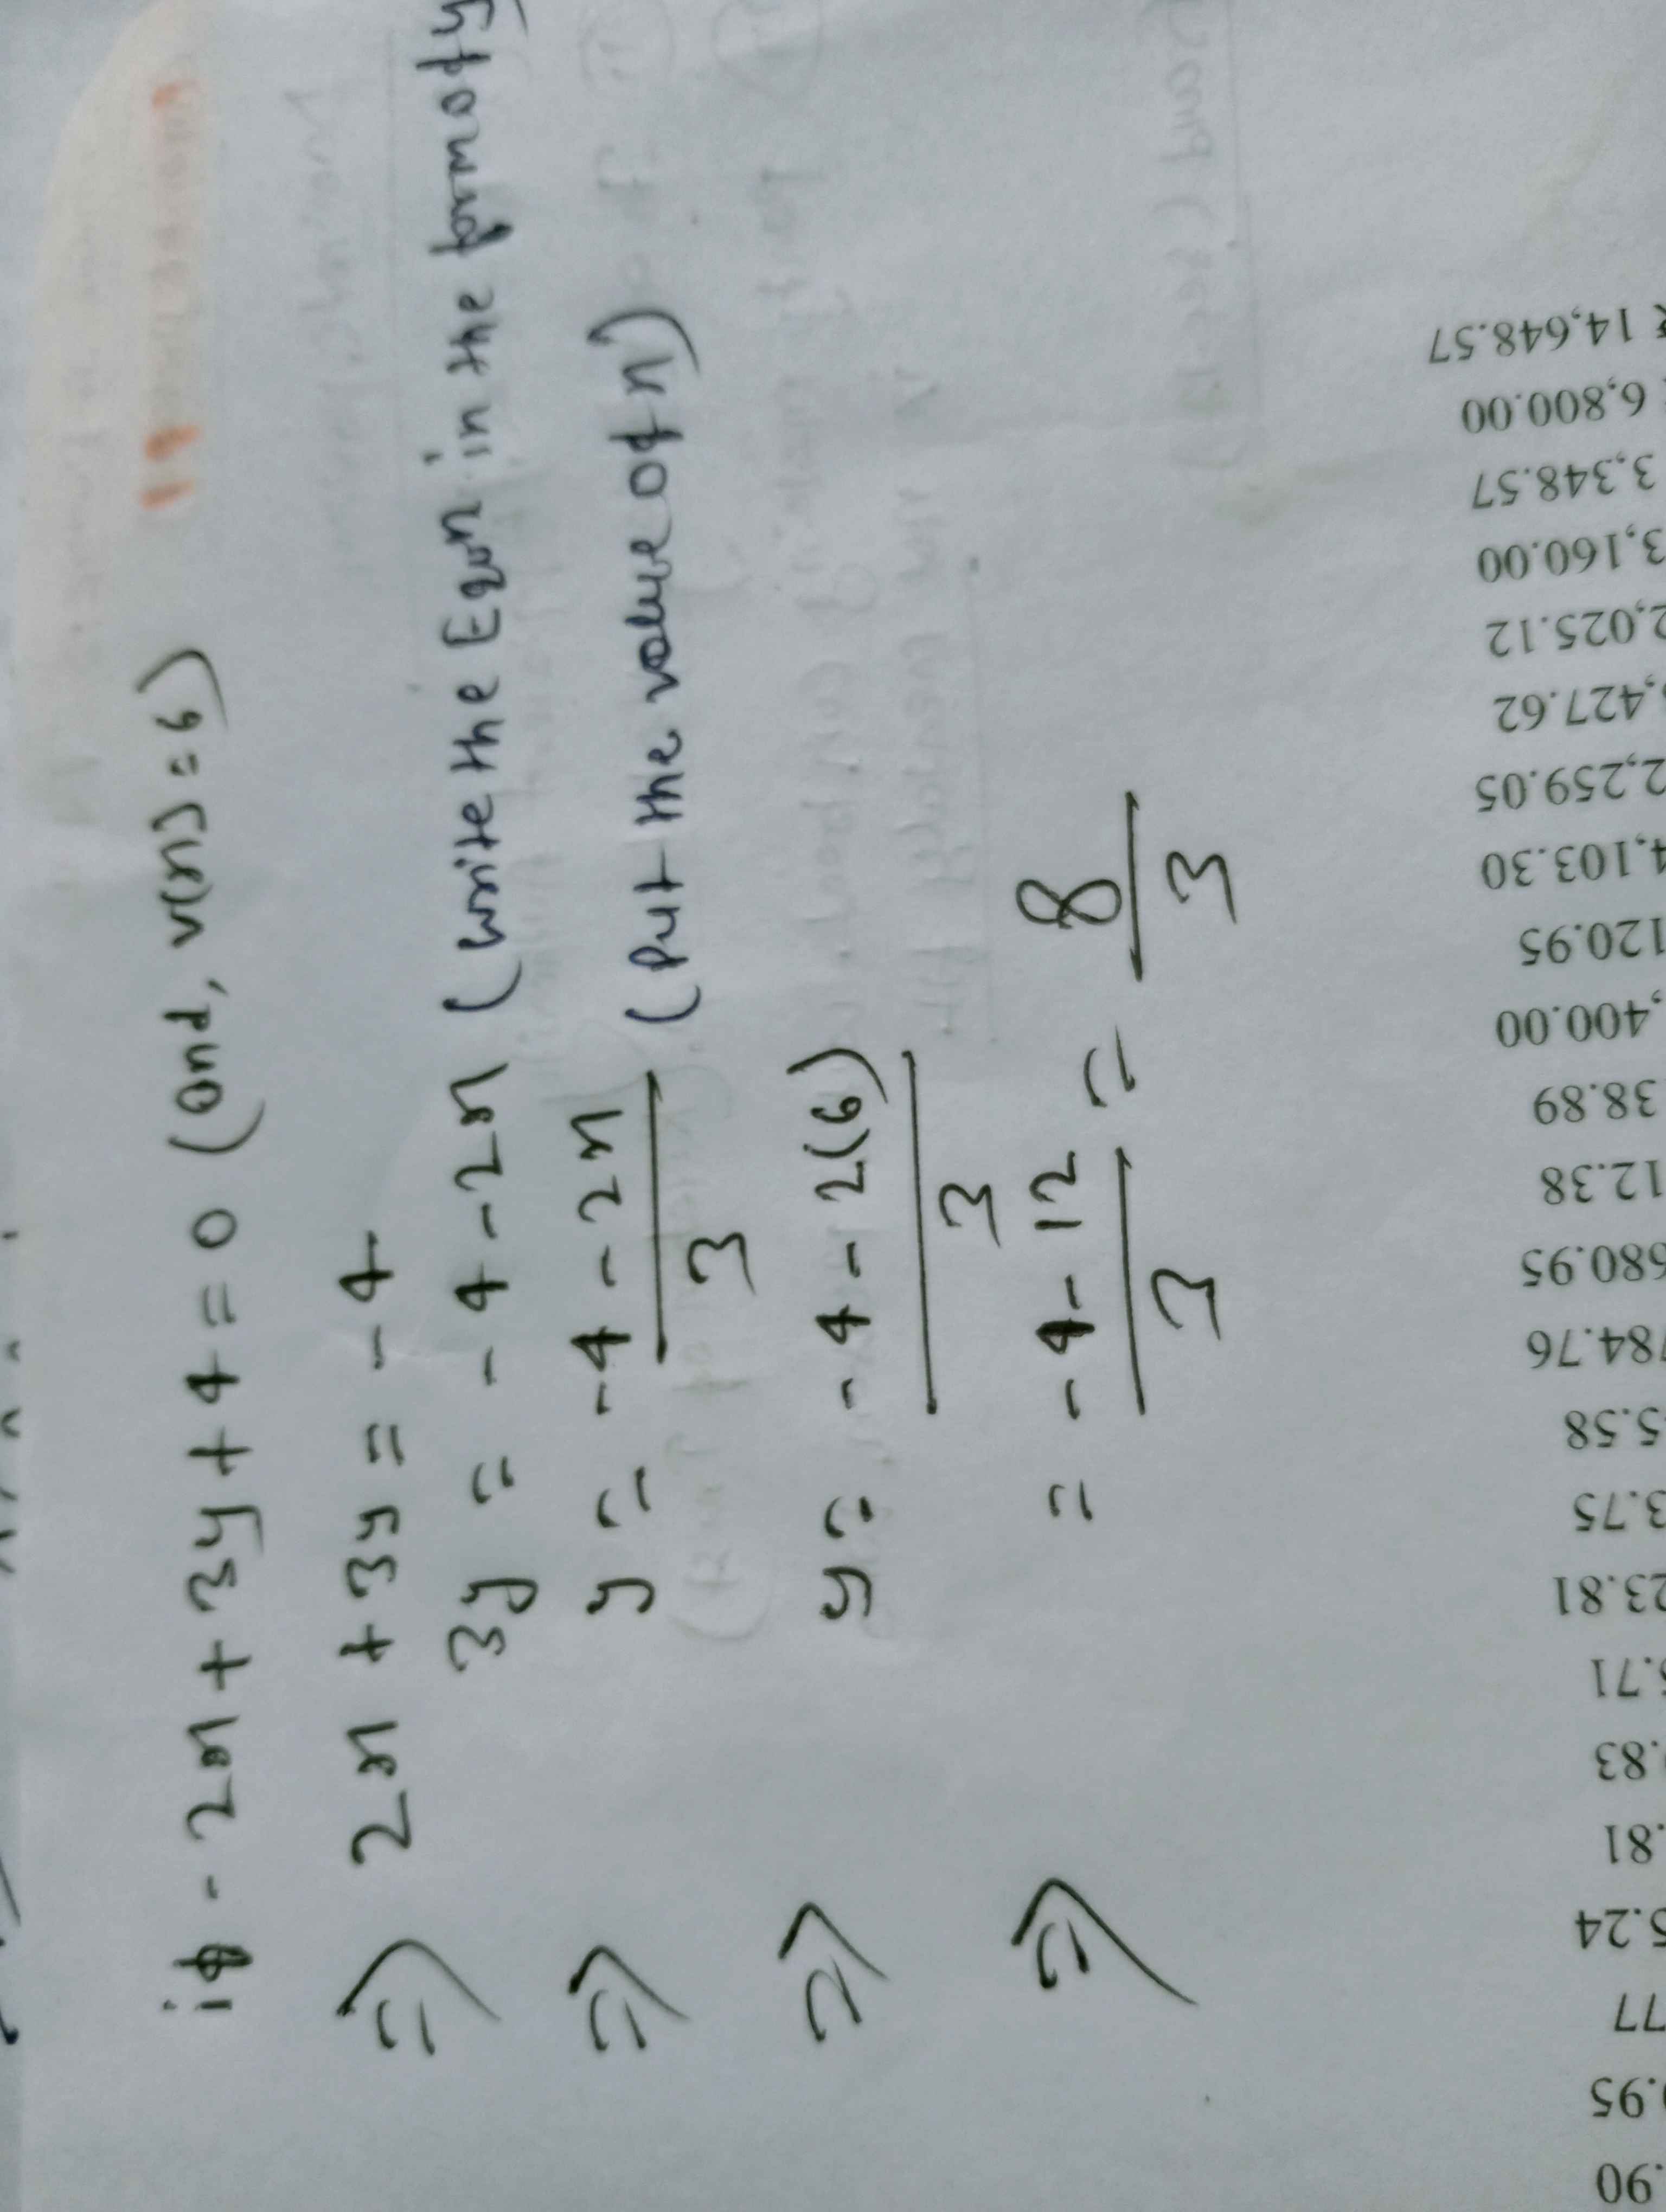 if - 2x + 3y + 4 = 0 (and, v(x) = 6)
=) 2x + 3y = - 4
3y = - 4 - 2x (write the Eqn in the form of y
=) y = -4 - 2x / 3 (put the value of x)
=) y = - 4 - 2(6) / 3
=) = - 4 - 12 / 3 = 8 / 3
₹ 14,648.57
6,800.00
3,348.57
3,160.00
2,025.12
,427.62
2,259.05
4,103.30
120.95
,400.00
38.89
12.38
680.95
784.76
5.58
3.75
23.81
.71
.83
.81
5.24
77
.95
.90